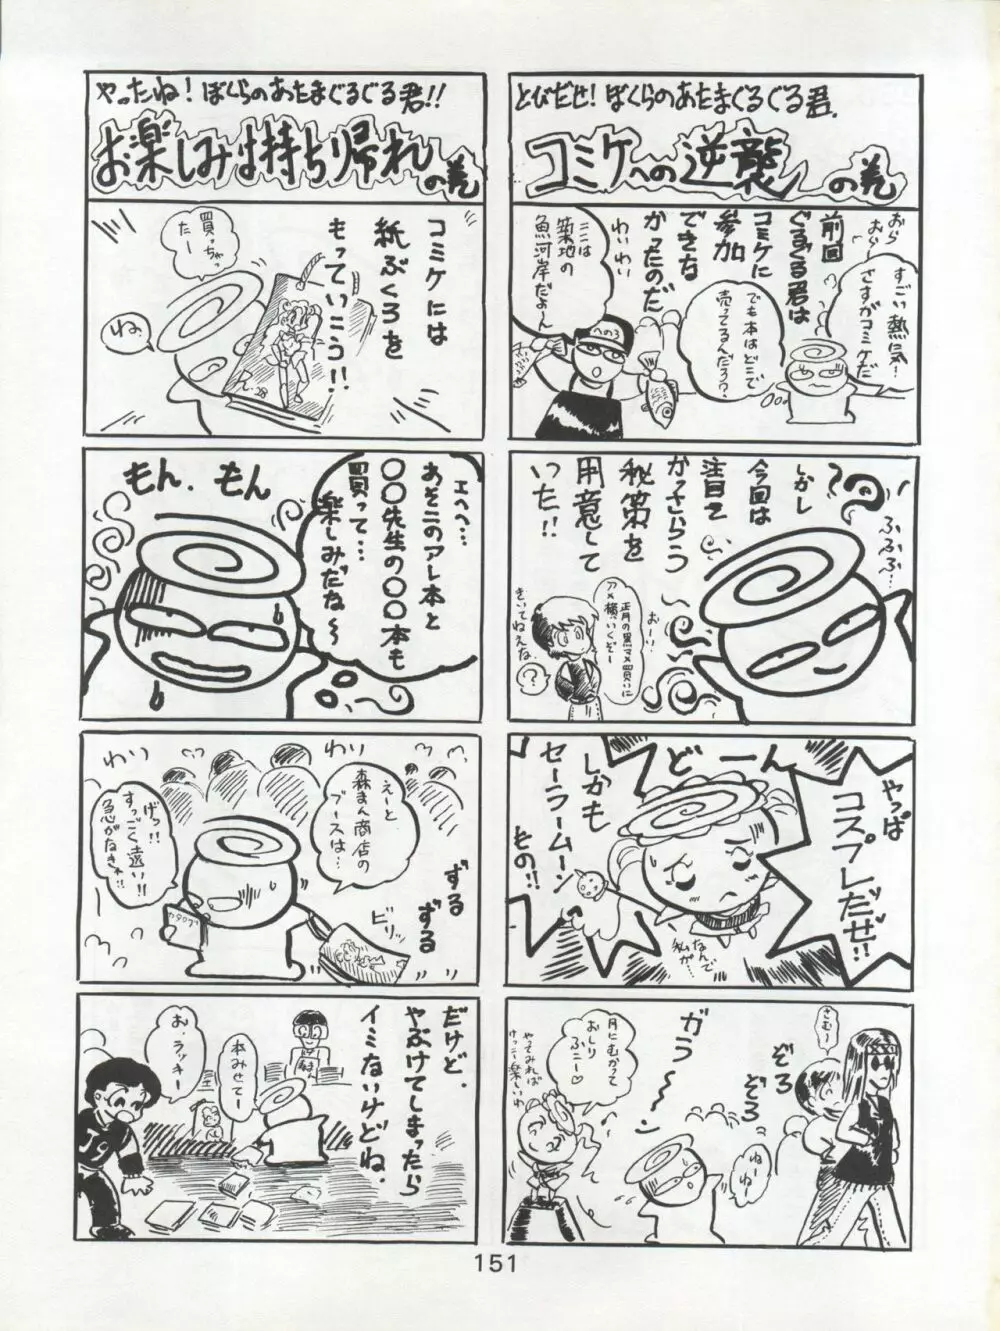 とびだせ!ぼくらのあたまぐるぐる君.
コミケへの逆襲
の巻
前回
ぐるぐる君は
コミケに
参加
できな
かったのだ
おら
おら〜
すごい熱気!
さすがコミケだ
でも本はどこで
売ってるんだろ?
わいわい
ここは
築地の
魚河岸だよ〜ん
へのろ
しかし
今回は
注目を
かっさらう
秘策を
用意して
いった!!
ふふふ…
おーい.
正月の黒マメ買いに
アメ横いくぞー
きいてねえな.
?
やっぱ
コスプレだぜ!!
どーん
しかも
セーラームーン
もの!!
なんで
私が…
さむ〜
ぞろ
ぞろ
ねーねー
ガラーーン
月にむかって
おしり
ぷニー♡
やってみれば
けっこー楽しいわ
やったね!ぼくらのあたまぐるぐる君!!
お楽しみは持ち帰れ
の巻
コミケには
紙ぶくろを
もっていこう!!
買っちゃっ
たー
ね.
エヘヘ…
あそこのアレ本と
〇〇先生の〇〇本も
買って…
楽しみだな〜
もん.もん
わい
わり
えーと
森まん商店の
ブースは…
げっ!!
すっごく遠い!!
急がなきゃ!!
カタログ
ビリッ
ずる
ずる
だけど.
やぶけてしまったら
イミないけどね.
本みせてー
お.ラッキー
151